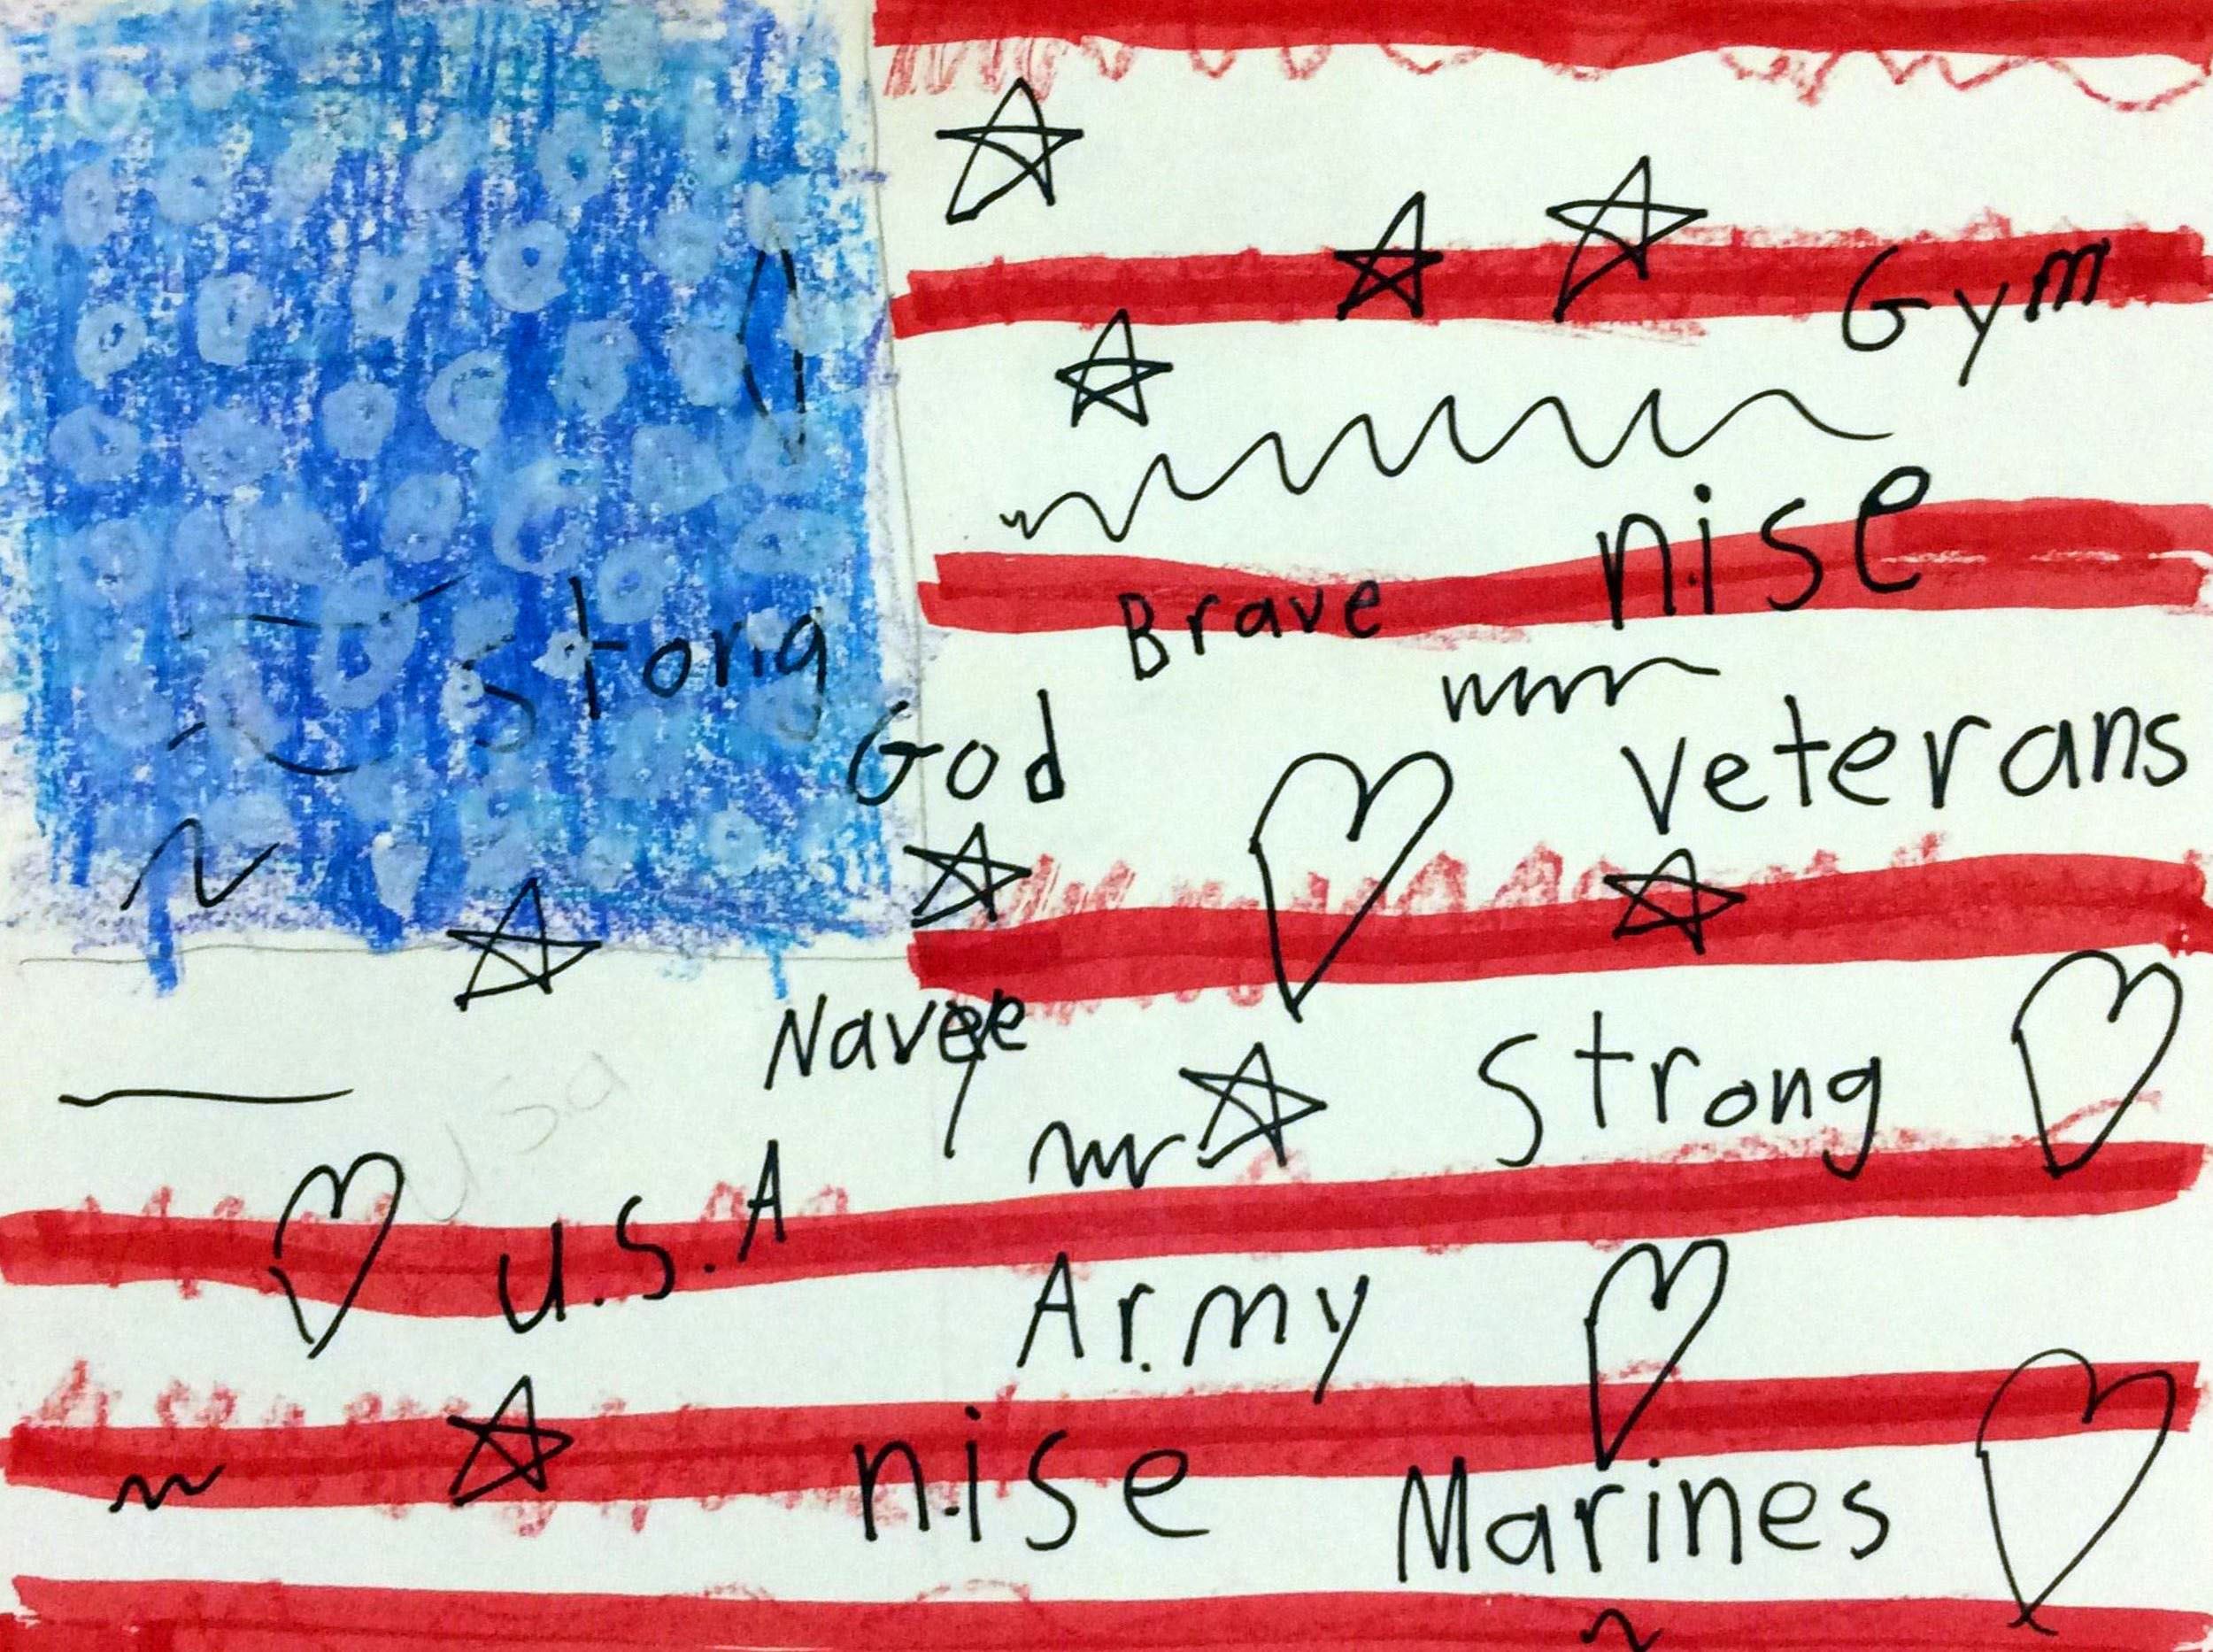 Gym
nise
Brave
Stong
God
veterans
Navy
Strong
usa
U.S.A
Army
nise
Marines